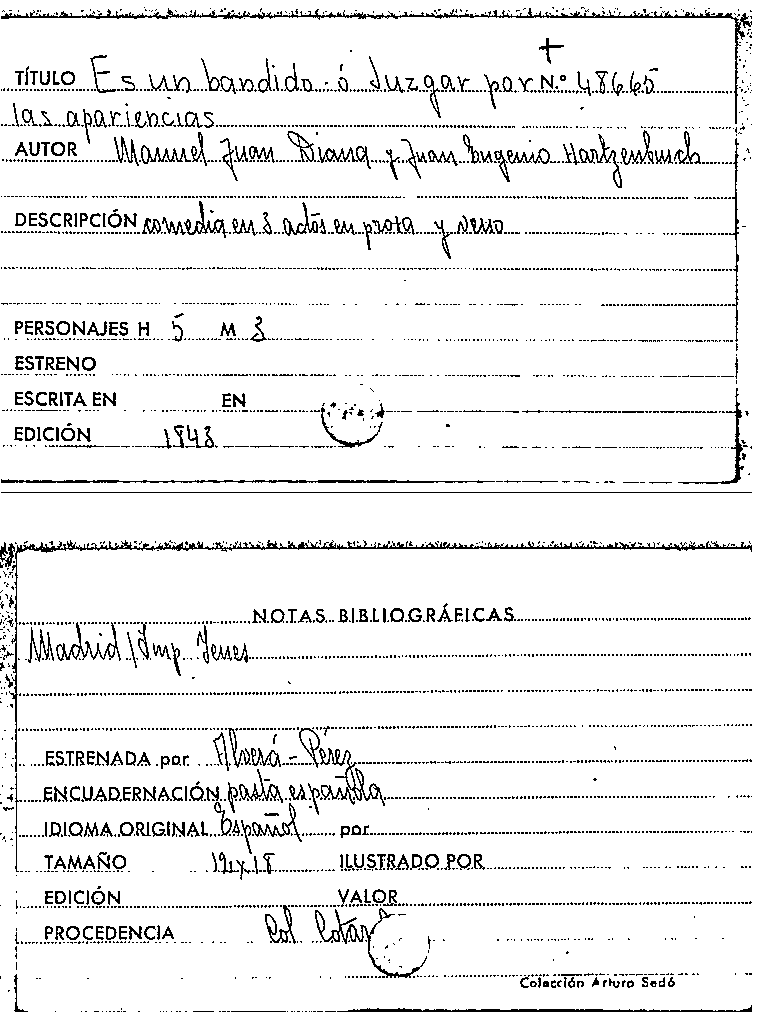 TÍTULO Es un bandido ó Juzgar por N.º 48665
las apariencias
AUTOR Manuel Juan Diana y Juan Eugenio Hartzenbusch
DESCRIPCIÓN comedia en 3 actos en prosa y verso
PERSONAJES H 5 M 3
ESTRENO
ESCRITA EN EN
EDICIÓN 1843
NOTAS BIBLIOGRÁFICAS
Madrid / Imp Yenes
ESTRENADA por Alverá - Pérez
ENCUADERNACIÓN pasta española
IDIOMA ORIGINAL Español por
TAMAÑO 12x18 ILUSTRADO POR
EDICIÓN VALOR
PROCEDENCIA Col
Colección Arturo Sedó